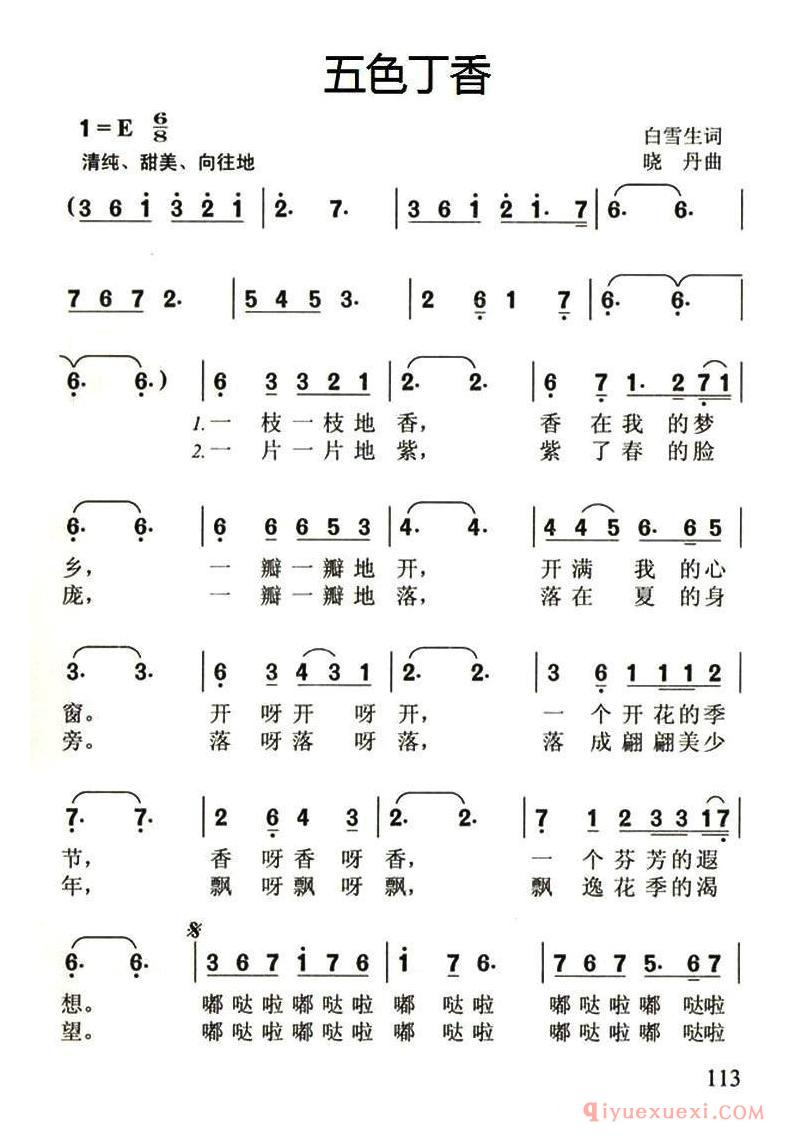 五色丁香
1=E 6/8
白雪生词
清纯、甜美、向往地
晓 丹曲
(3 6 i 3 2 i | 2. 7. | 3 6 i 2 i. 7 | 6. 6. |
7 6 7 2. | 5 4 5 3. | 2 6 1 7 | 6. 6. |
6. 6.) | 6 3 3 2 1 | 2. 2. | 6 7 1. 2 7 1 |
1.一 枝 一 枝 地 香, 香 在 我 的 梦
2.一 片 一 片 地 紫, 紫 了 春 的 脸
6. 6. | 6 6 6 5 3 | 4. 4. | 4 4 5 6. 6 5 |
乡, 一 瓣 一 瓣 地 开, 开 满 我 的 心
庞, 一 瓣 一 瓣 地 落, 落 在 夏 的 身
3. 3. | 6 3 4 3 1 | 2. 2. | 3 6 1 1 1 2 |
窗。 开 呀 开 呀 开, 一 个 开 花 的 季
旁。 落 呀 落 呀 落, 落 成 翩 翩 美 少
7. 7. | 2 6 4 3 | 2. 2. | 7 1 2 3 3 1 7 |
节, 香 呀 香 呀 香, 一 个 芬 芳 的 遐
年, 飘 呀 飘 呀 飘, 飘 逸 花 季 的 渴
𝄋
6. 6. | 3 6 7 i 7 6 | i 7 6. | 7 6 7 5. 6 7 |
想。 嘟 哒 啦 嘟 哒 啦 嘟 哒 啦 嘟 哒 啦 嘟 哒 啦
望。 嘟 哒 啦 嘟 哒 啦 嘟 哒 啦 嘟 哒 啦 嘟 哒 啦
113
qiyuexuexi.com